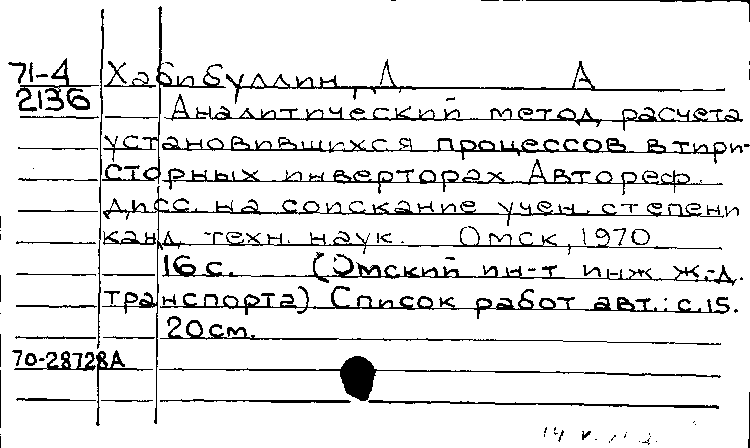 71-4 Хабибуллин, Д А
2136 Аналитический метод расчета
установившихся процессов в тири-
сторных инверторах Автореф.
дисс. на соискание учен. степени
канд. техн. наук. Омск, 1970
16 с. (Омский ин-т инж ж.-д.
транспорта) Список работ авт.: с. 15.
20 см.
70-28728А